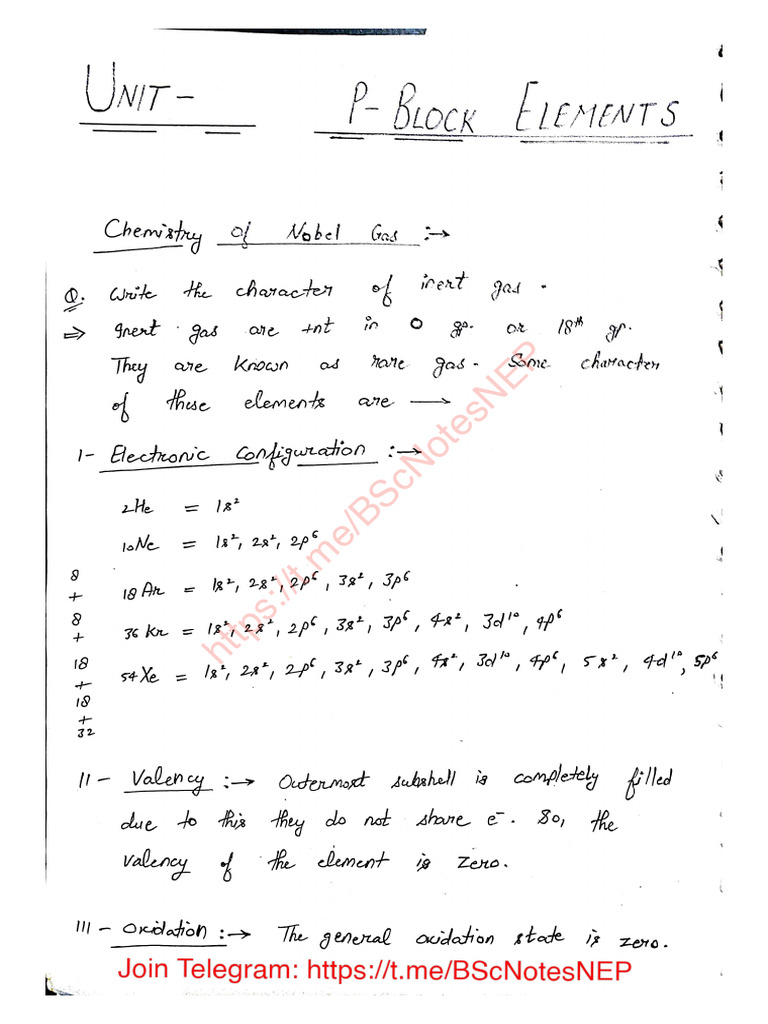 UNIT - P-BLOCK ELEMENTS
Chemistry of Nobel Gas :→
Q. Write the character of inert gas.
⇒ Inert gas are +nt in 0 gp. or 18th gp.
They are known as rare gas. Some character
of these elements are →
I- Electronic Configuration :→
2He = 1s², 
10Ne = 1s², 2s², 2p⁶
8
+
18Ar = 1s², 2s², 2p⁶, 3s², 3p⁶
8
+
36Kr = 1s², 2s², 2p⁶, 3s², 3p⁶, 4s², 3d¹⁰, 4p⁶
18
+
54Xe = 1s², 2s², 2p⁶, 3s², 3p⁶, 4s², 3d¹⁰, 4p⁶, 5s², 4d¹⁰, 5p⁶
18
+
32
II- Valency :→ Outermost subshell is completely filled
due to this they do not share e⁻. So, the
valency of the element is zero.
III- Oxidation :→ The general oxidation state is zero.
https://t.me/BScNotesNEP
Join Telegram: https://t.me/BScNotesNEP